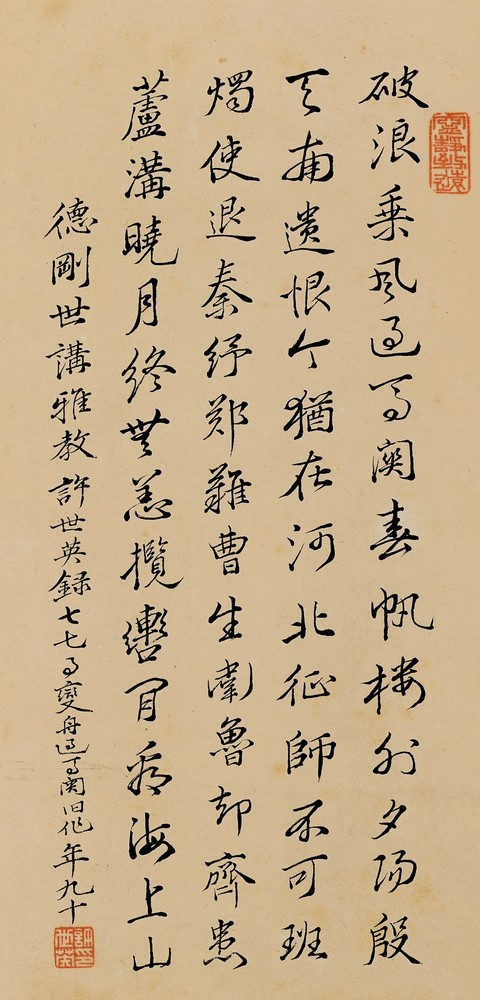 寧靜致遠
破浪乘風過馬關春帆樓外夕陽殷
天南遺恨今猶在河北征師不可班
燭使退秦紓鄭難曹生衛魯却齊患
蘆溝曉月終無恙攬轡閒看海上山
德剛世講雅教許世英録七七事變舟過馬關旧作年九十
許世英印